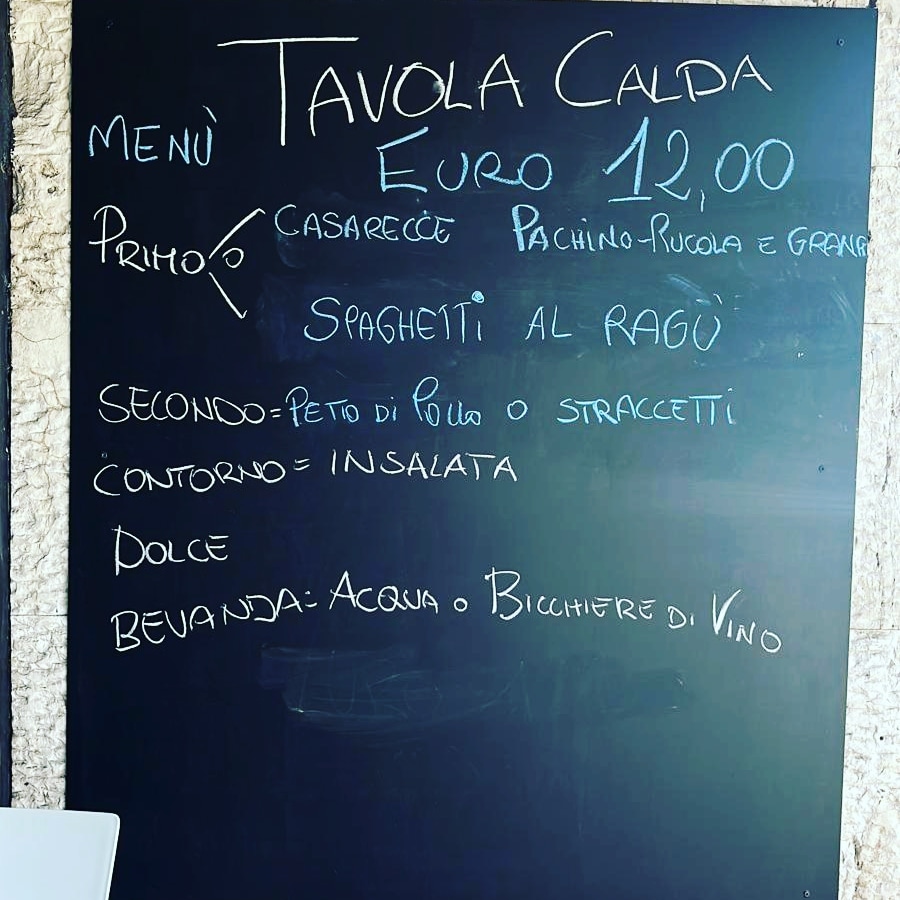 TAVOLA CALDA
MENÙ EURO 12,00
PRIMO O CASARECCE PACHINO-RUCOLA E GRANA
SPAGHETTI AL RAGÙ
SECONDO= PETTO DI POLLO O STRACCETTI
CONTORNO= INSALATA
DOLCE
BEVANDA= ACQUA O BICCHIERE DI VINO